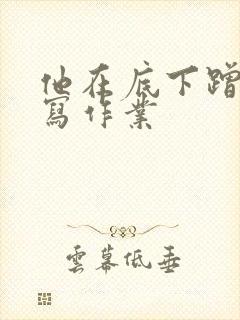 他在底下蹭
寫作業
雲幕低垂